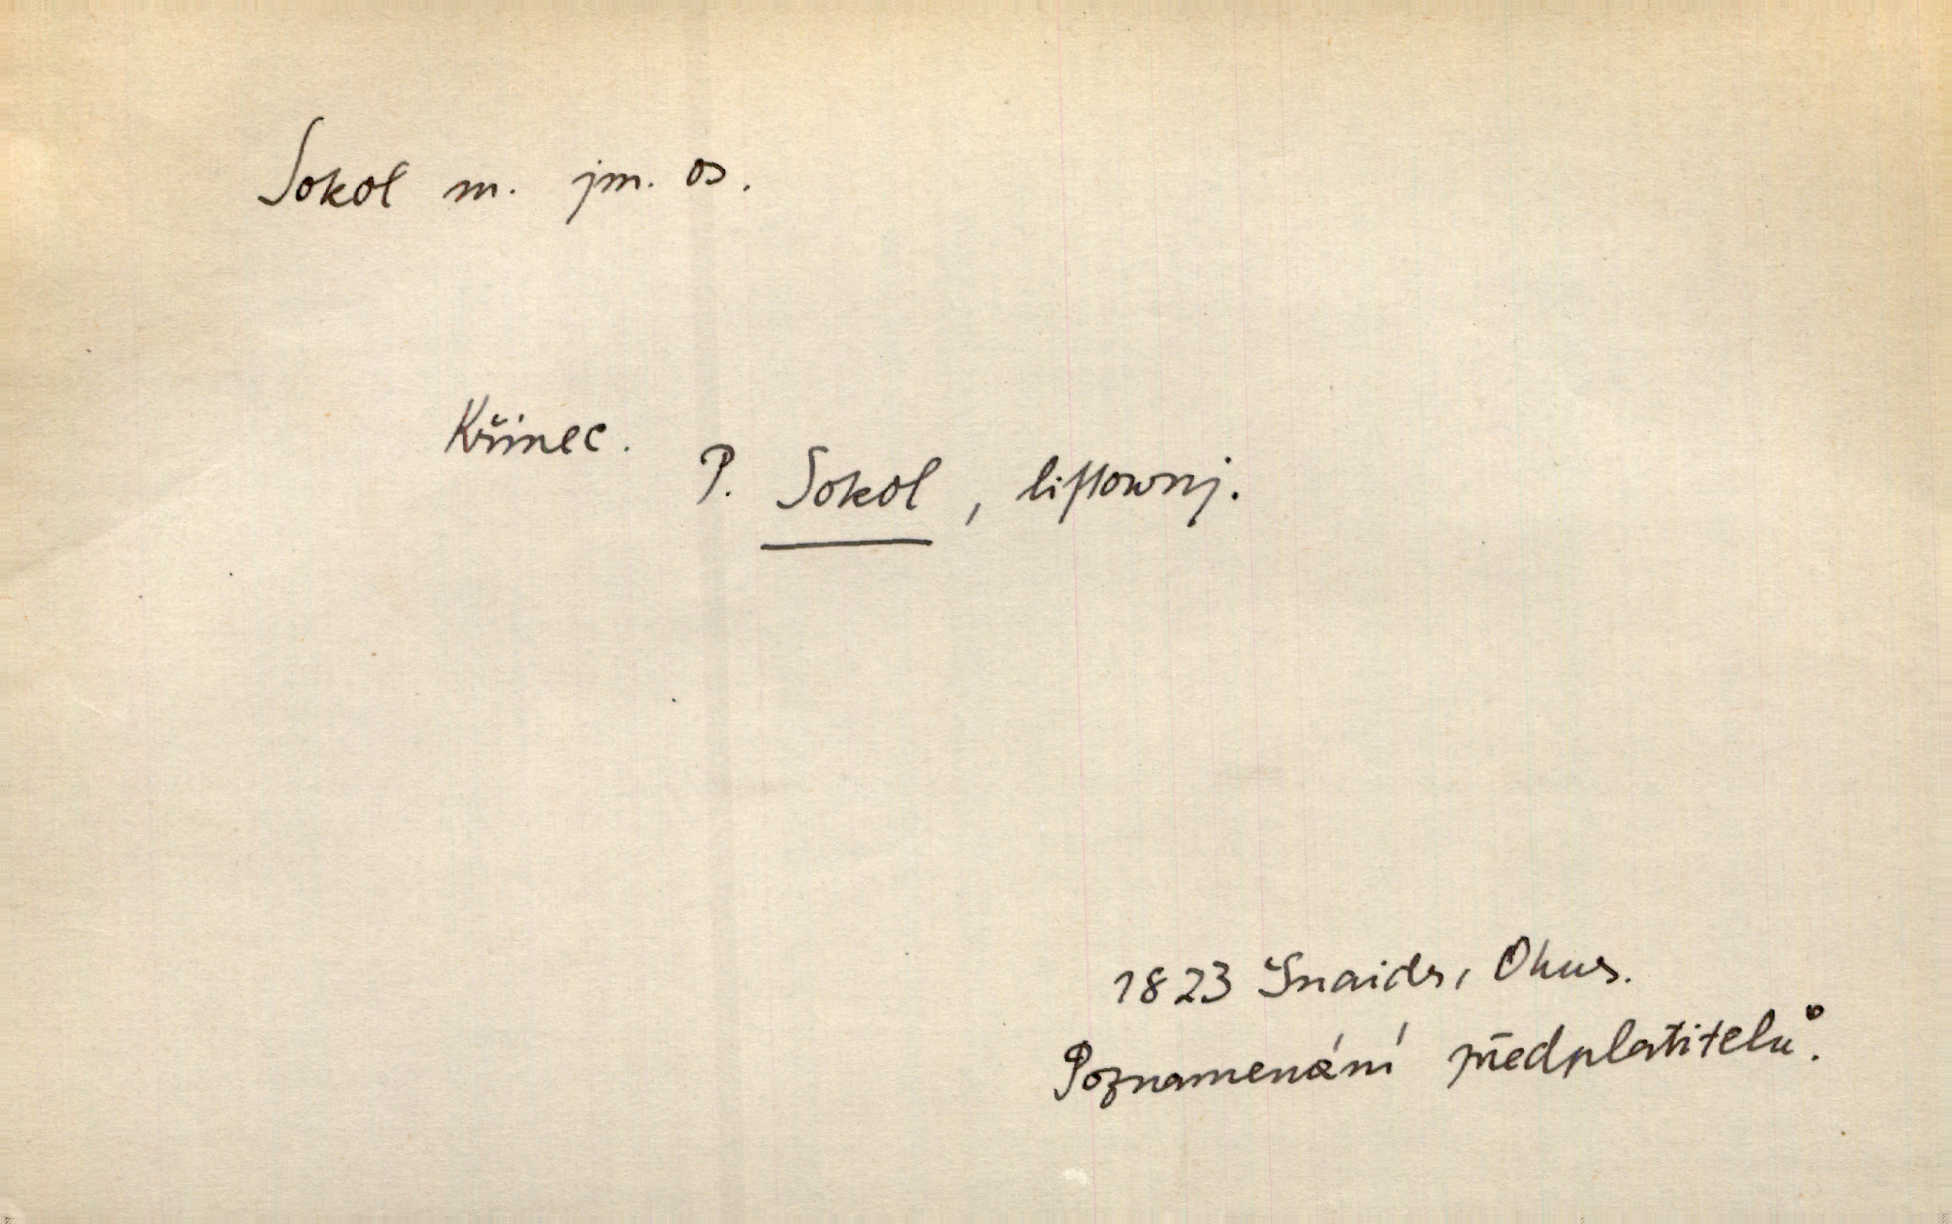 Sokol m. jm. os.
Křinec.
P. Sokol, liſtownj.
1823 Šnaidr, Okus.
Poznamenání předplatitelů.